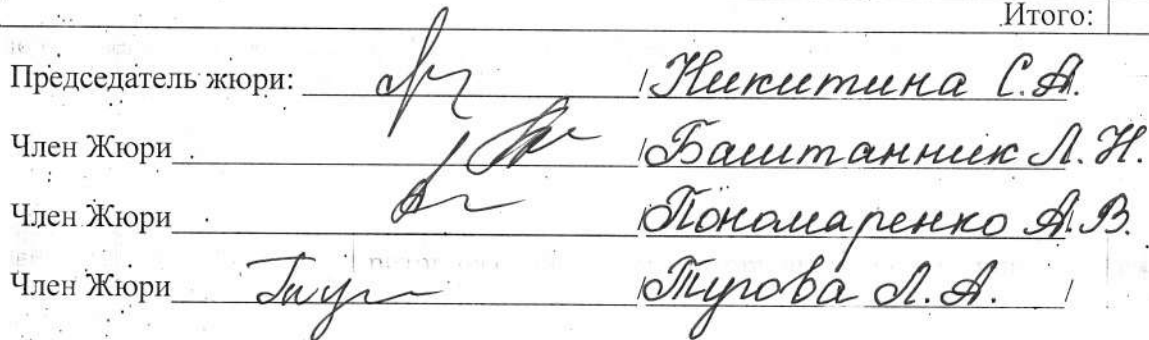 Итого:
Председатель жюри: /Никитина С.А.
Член Жюри /Баштанник Л.Н.
Член Жюри /Пономаренко А.В.
Член Жюри /Турова Л.А. /